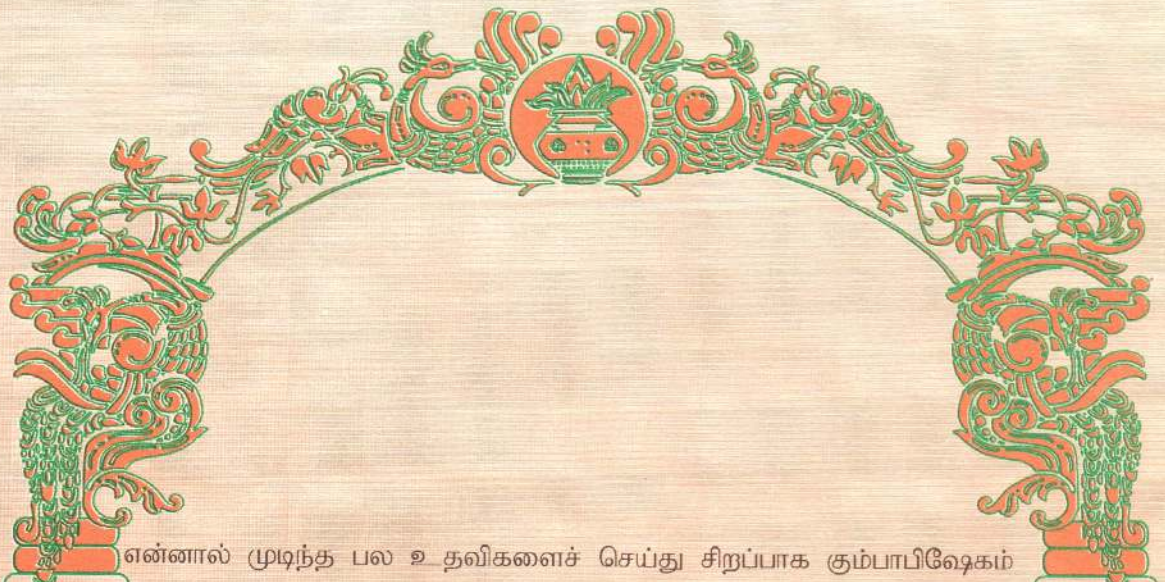 என்னால் முடிந்த பல உதவிகளைச் செய்து சிறப்பாக கும்பாபிஷேகம்